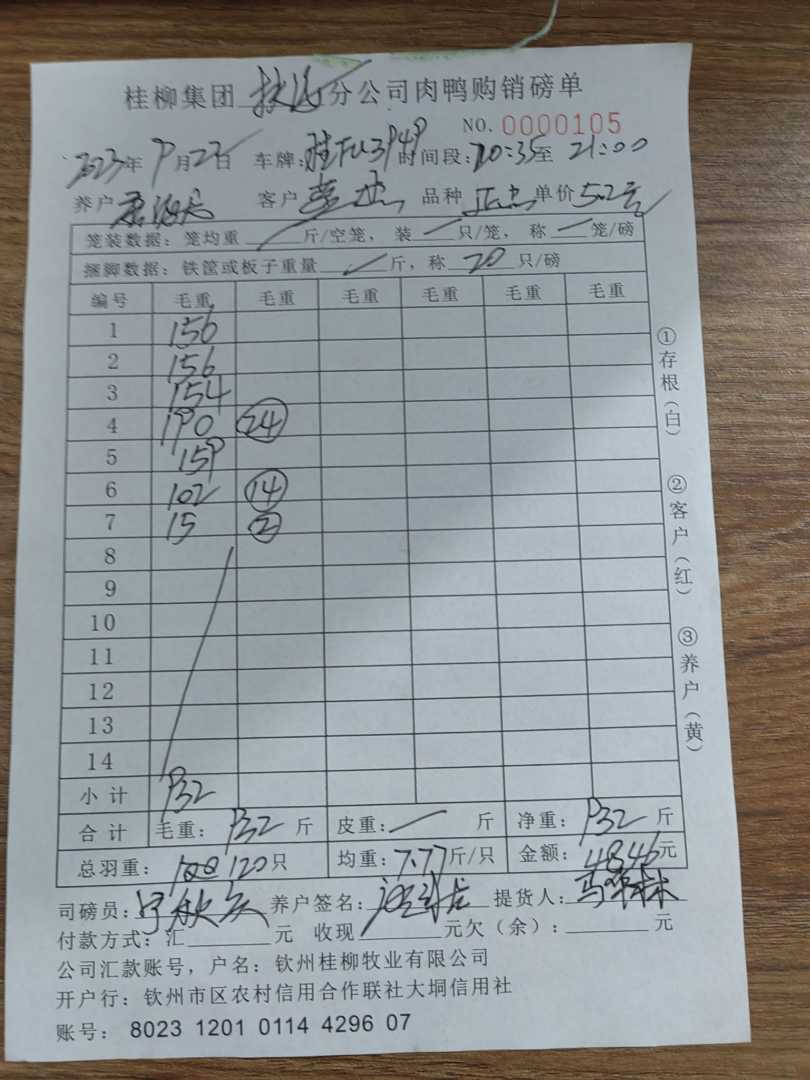 桂柳集团 分公司肉鸭购销磅单
NO. 0000105
2023年9月23日 车牌: 时间段:20:35至21:00
养户 客户 品种 单价5.2元
笼装数据:笼均重 / 斤/空笼,装 一 只/笼,称 一 笼/磅
捆脚数据:铁筐或板子重量 / 斤,称 20 只/磅
编号 毛重 毛重 毛重 毛重 毛重 毛重
1 156
2 156
3 154
4 190 24
5 159
6 102 14
7 15 2
8
9
10
11
12
13
14
小计 932
合计 毛重:932斤 皮重:/ 斤 净重:932斤
总羽重: 120只 均重:7.77斤/只 金额:4846元
司磅员: 养户签名: 提货人:
付款方式:汇 元 收现 元欠(余): 元
公司汇款账号,户名:钦州桂柳牧业有限公司
开户行:钦州市区农村信用合作联社大垌信用社
账号:8023 1201 0114 4296 07
①存根(白) ②客户(红) ③养户(黄)